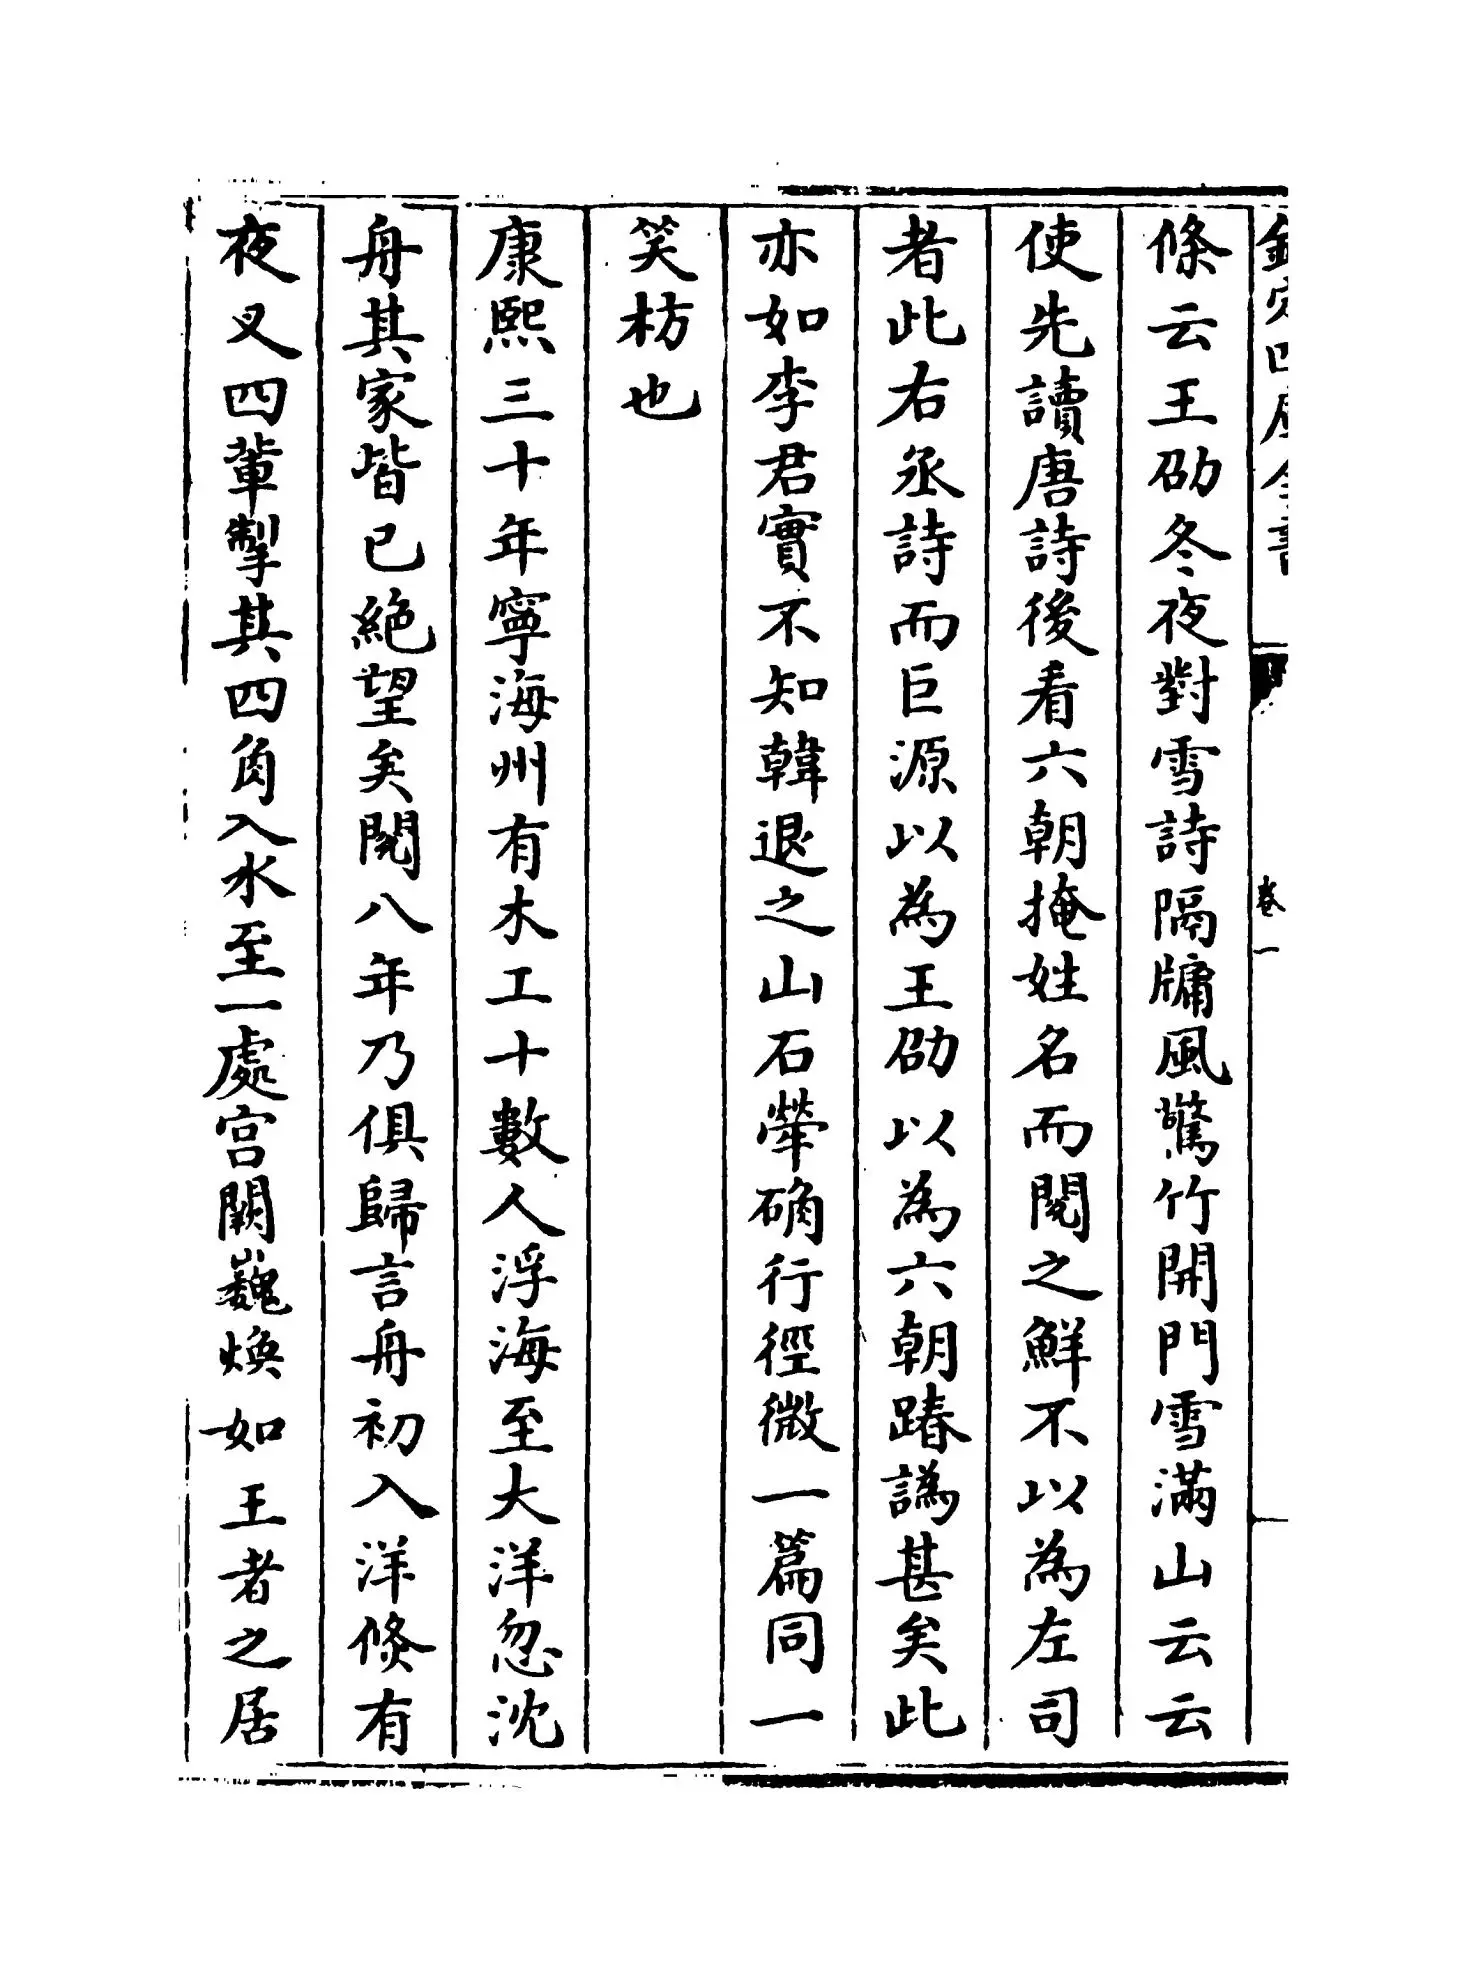 欽定四庫全書
卷一
條云王劭冬夜對雪詩隔牖風驚竹開門雪滿山云云
使先讀唐詩後看六朝掩姓名而閱之鮮不以為左司
者此右丞詩而巨源以為王劭以為六朝踳譌甚矣此
亦如李君實不知韓退之山石犖确行徑微一篇同一
笑枋也
康熙三十年寧海州有木工十數人浮海至大洋忽沈
舟其家皆已絶望矣閱八年乃俱歸言舟初入洋倐有
夜叉四輩掣其四角入水至一處宫闕巍煥如王者之居